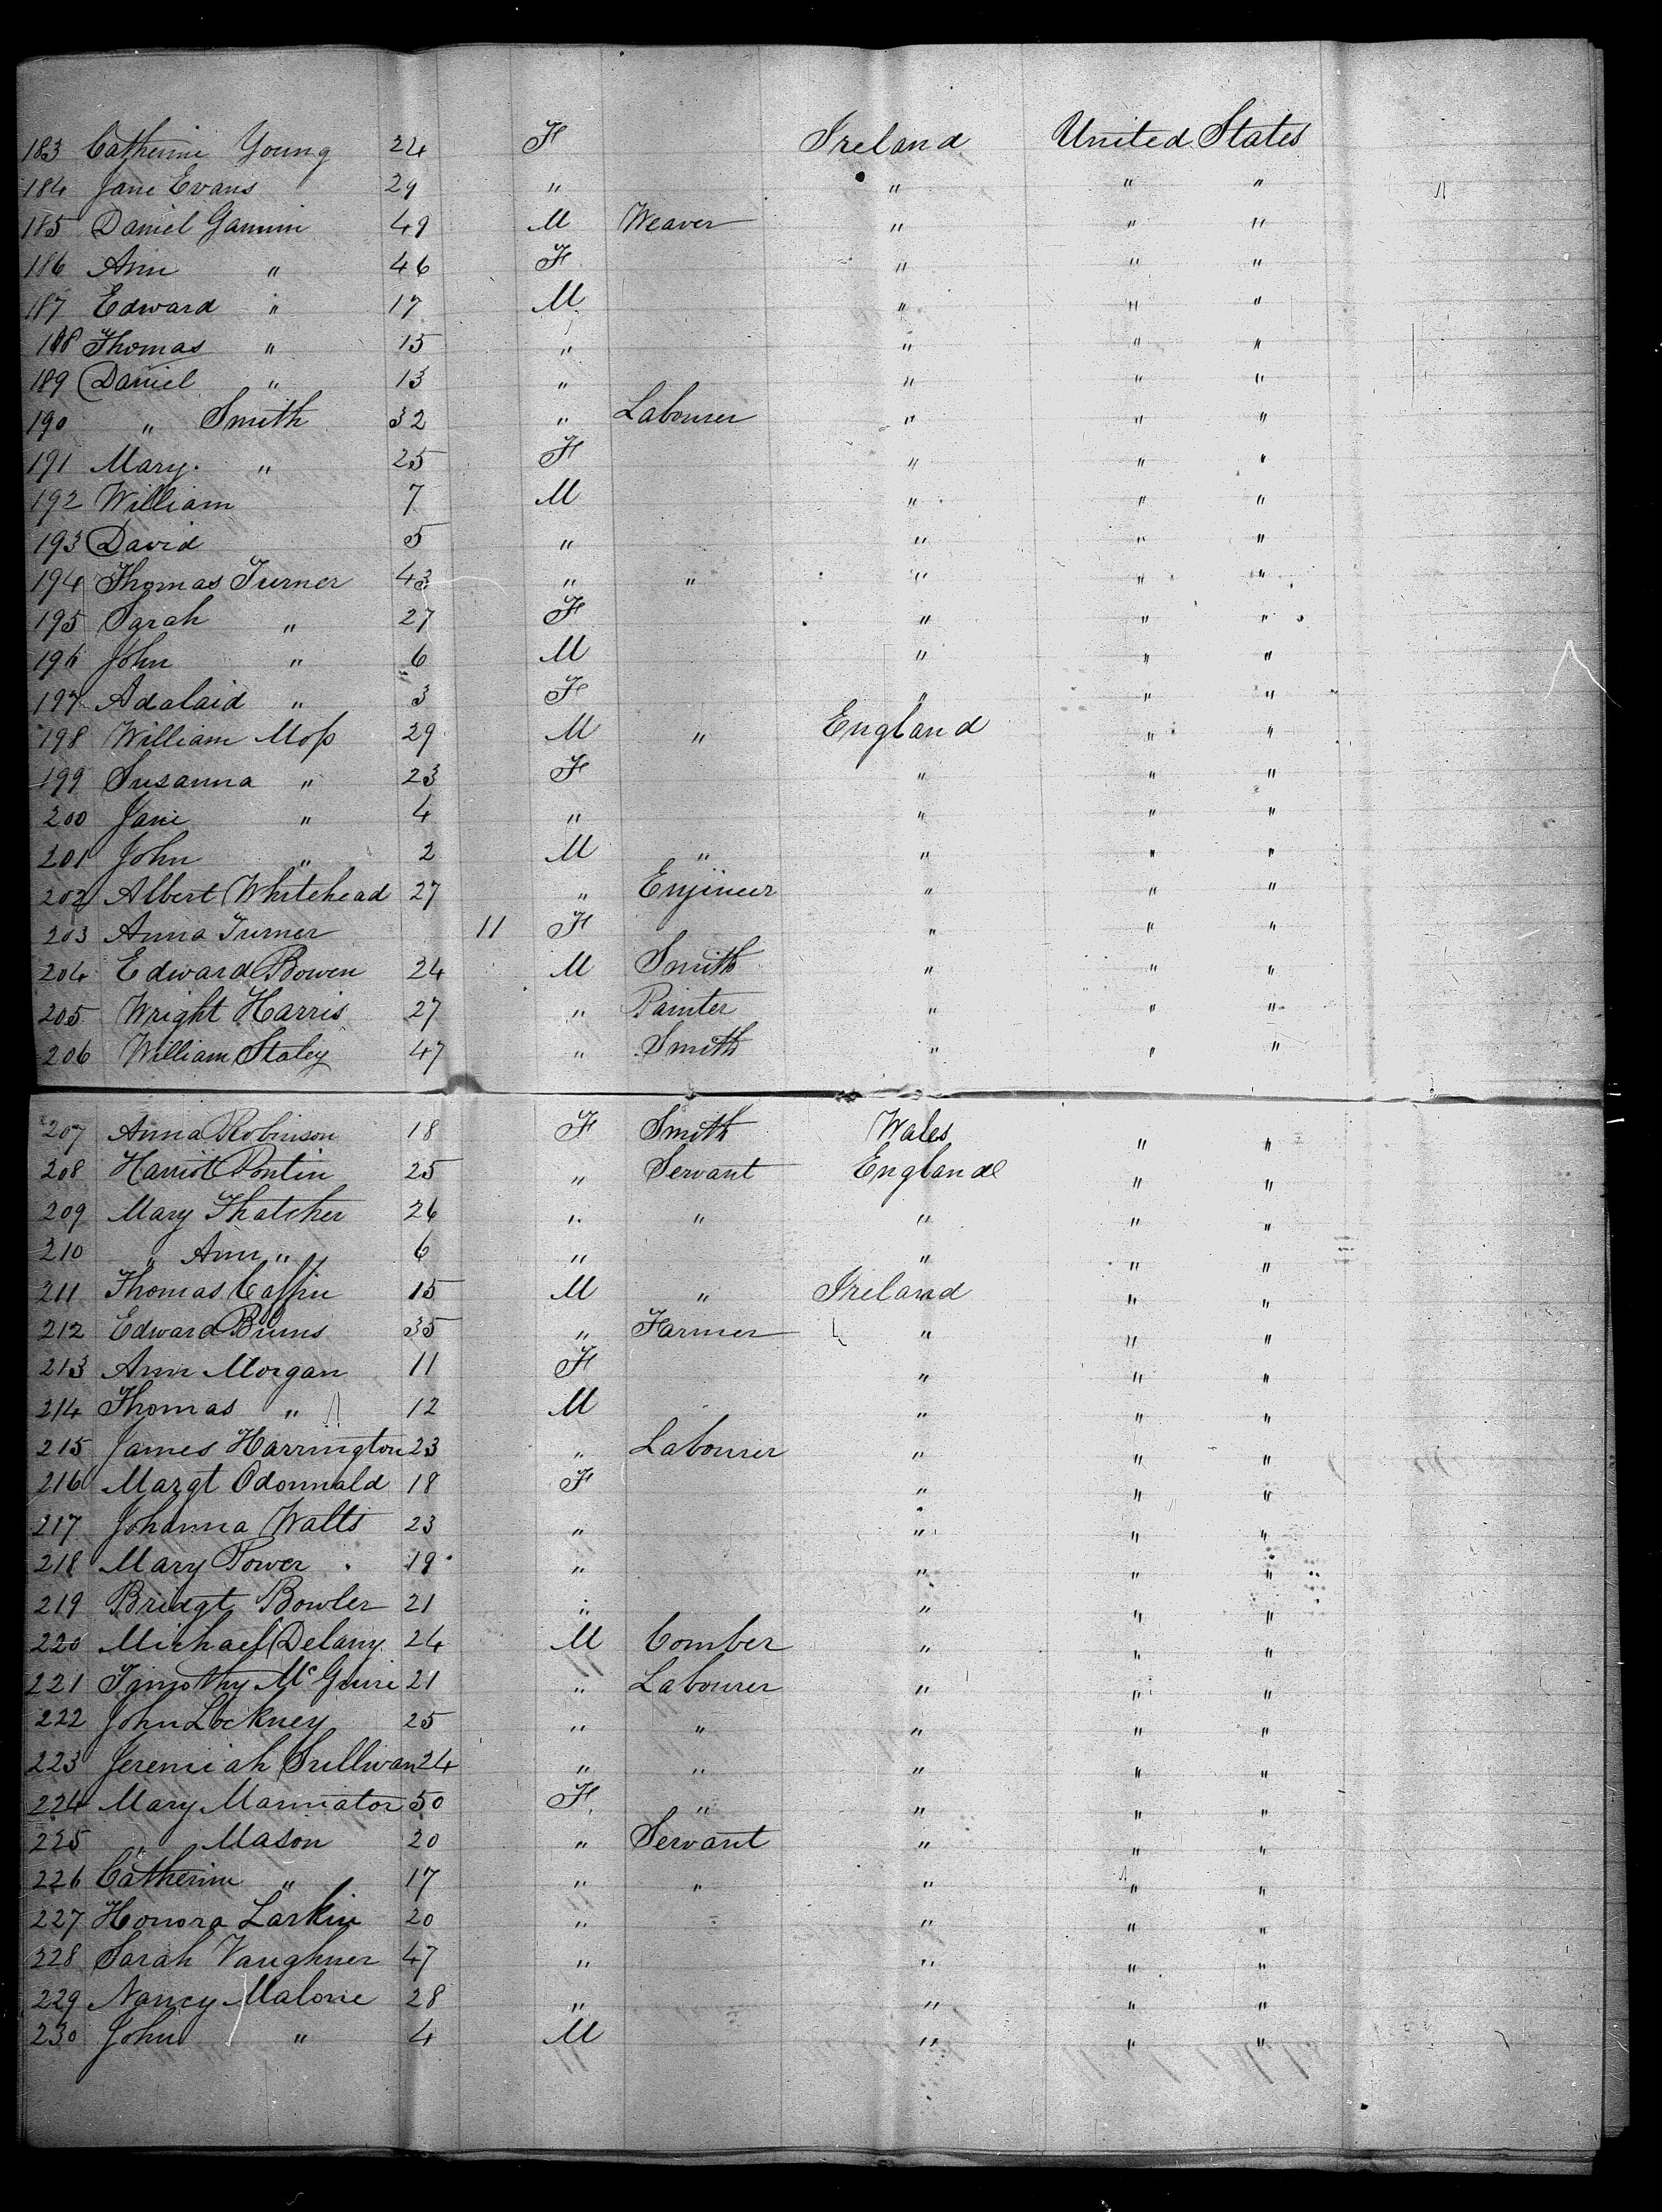 183 Catherine Young 24 F Ireland United States
184 Jane Evans 29 " " " "
185 Daniel Gammin 49 M Weaver " " "
186 Ann " 46 F " " "
187 Edward " 17 M " " "
188 Thomas " 15 " " " "
189 Daniel " 13 " " " "
190 " Smith 32 " Labourer " " "
191 Mary " 25 F " " "
192 William 7 M " " "
193 David 5 " " " "
194 Thomas Turner 43 " " " " "
195 Sarah " 27 F " " "
196 John " 6 M " " "
197 Adalaid " 3 F " " "
198 William Moss 29 M " England " "
199 Susanna " 23 F " " "
200 Jane " 4 " " " "
201 John " 2 M " " " "
202 Albert Whitehead 27 " Enjineer " " "
203 Anna Turner 11 F " " "
204 Edward Bowen 24 M Smith " " "
205 Wright Harris 27 " Painter " " "
206 William Staley 47 " Smith " " "
207 Anna Robinson 18 F Smith Wales " "
208 Harriot Pontin 25 " Servant England " "
209 Mary Thatcher 26 " " " " "
210 " Ann " 6 " " " "
211 Thomas Caffin 15 M " Ireland " "
212 Edward Burns 35 " Farmer " " "
213 Ann Morgan 11 F " " "
214 Thomas " 12 M " " "
215 James Harrington 23 " Labourer " " "
216 Margt Odonnald 18 F " " "
217 Johanna Walts 23 " " " "
218 Mary Power 19 " " " "
219 Bridgt Bowler 21 " " " "
220 Michael Delany 24 M Comber " " "
221 Timothy Mc Guire 21 " Labourer " " "
222 John Lockney 25 " " " " "
223 Jeremiah Sullivan 24 " " " " "
224 Mary Marmator 50 F " " " "
225 " Mason 20 " Servant " " "
226 Catherine " 17 " " " " "
227 Honora Larkin 20 " " " "
228 Sarah Vaughner 47 " " " "
229 Nancy Malone 28 " " " "
230 John " 4 M " " "